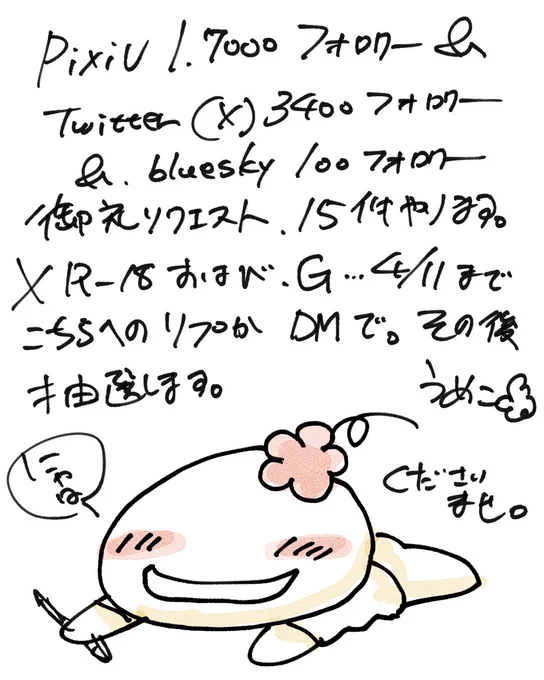 pixiv 1.7000 フォロワー &
Twitter (X) 3400 フォロワー
&. bluesky 100フォロワー
御礼リクエスト、15件やります。
X R-18 おはび、G…4/11まで
こちらへのリプか DMで。その後
抽選します。
うめこ
にゃは
くださいませ。